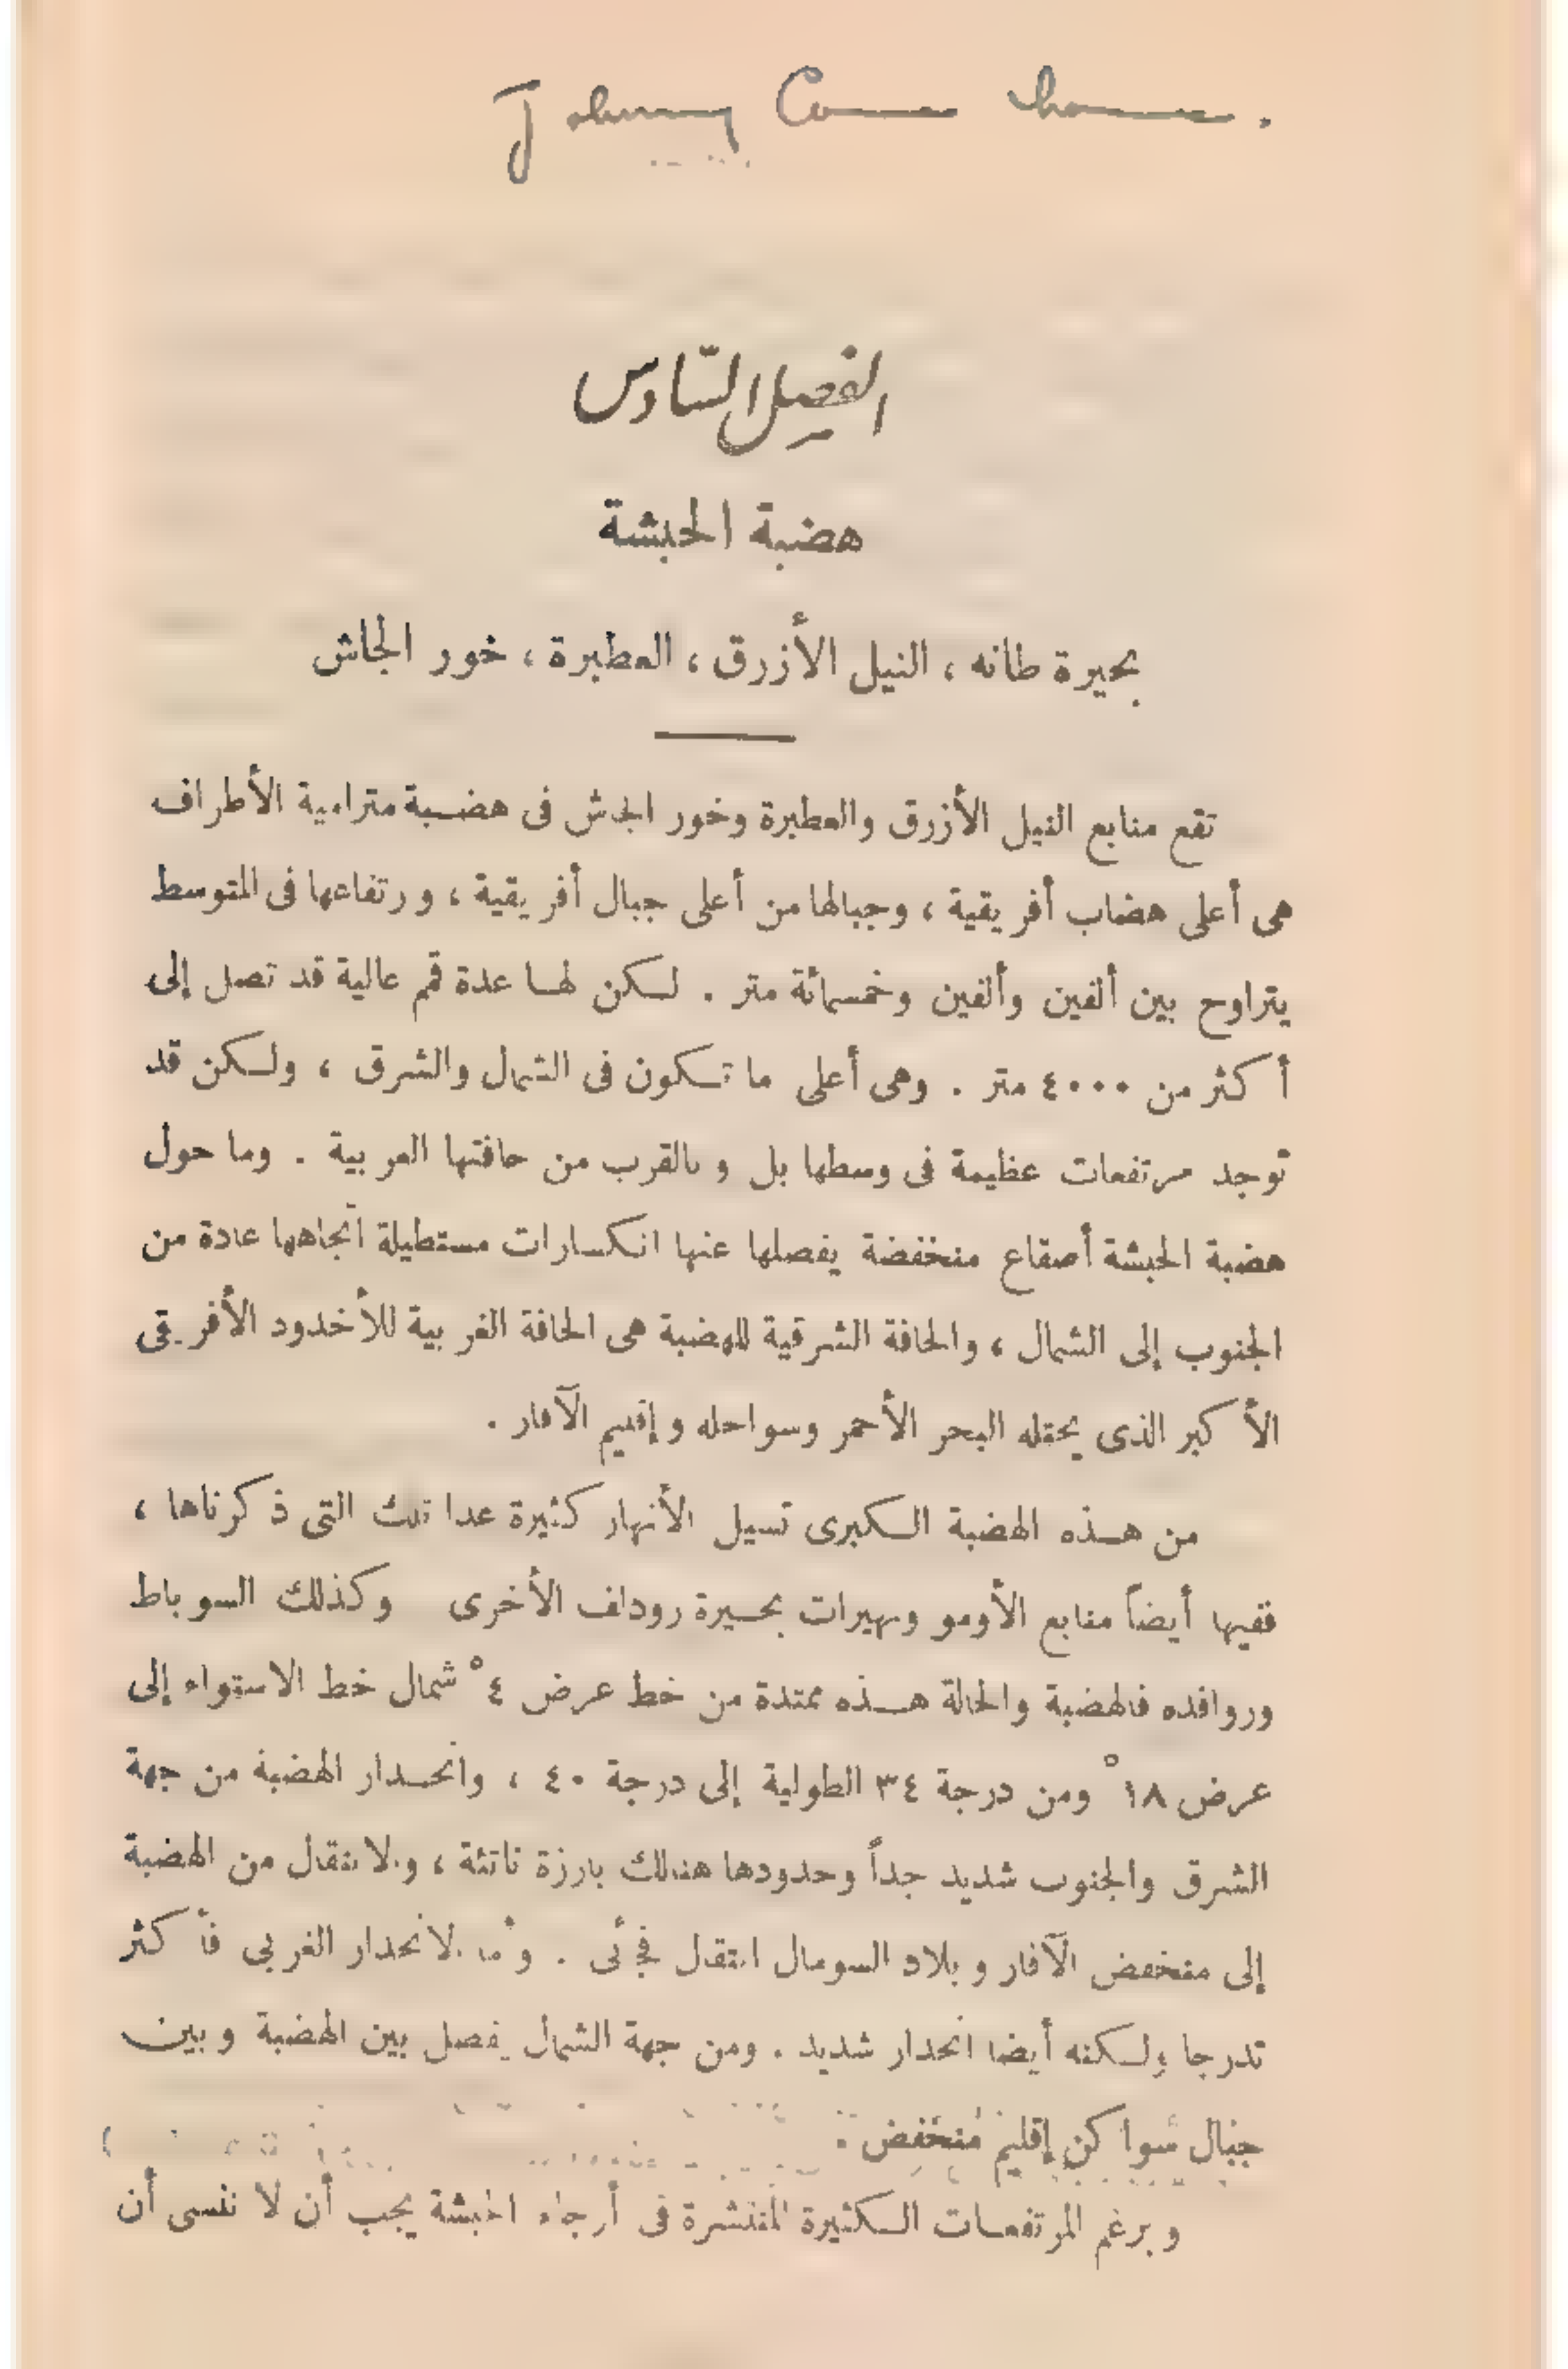 Johnny Come home.
الفصل السادس
هضبة الحبشة
بحيرة طانه ، النيل الأزرق ، العطبرة ، خور الجاش
تقع منابع النيل الأزرق والعطبرة وخور الجاش فى هضبة مترامية الأطراف
هى أعلى هضاب أفريقية ، وجبالها من أعلى جبال أفريقية ، ورتفاعها فى المتوسط
يتراوح بين ألفين وألفين وخمسمائة متر . لكن لها عدة قمم عالية قد تصل إلى
أكثر من ٤٠٠٠ متر . وهى أعلى ما تكون فى الشمال والشرق ، ولكن قد
توجد مرتفعات عظيمة فى وسطها بل وبالقرب من حافتها العربية . وما حول
هضبة الحبشة أصقاع منخفضة يفصلها عنها انكسارات مستطيلة اتجاهها عادة من
الجنوب إلى الشمال ، والحافة الشرقية للهضبة هى الحافة الغربية للأخدود الأفريقى
الأكبر الذى يحتله البحر الأحمر وسواحله وإقليم الآفار .
من هذه الهضبة الكبرى تسيل الأنهار كثيرة عدا تلك التى ذكرناها ،
ففيها أيضاً منابع الأومو ونهيرات بحيرة رودلف الأخرى وكذلك السوباط
وروافده فالهضبة والحالة هذه ممتدة من خط عرض ٤° شمال خط الاستواء إلى
عرض ١٨° ومن درجة ٣٤ الطولية إلى درجة ٤٠ ، وانحدار الهضبة من جهة
الشرق والجنوب شديد جداً وحدودها هنالك بارزة ناتئة ، والانتقال من الهضبة
إلى منخفض الآفار وبلاد السومال انتقال فجئى . وأما الانحدار الغربى فأكثر
تدرجا ولكنه أيضا انحدار شديد . ومن جهة الشمال يفصل بين الهضبة وبين
جبال سواكن إقليم منخفض .
وبرغم المرتفعات الكثيرة المنتشرة فى أرجاء الحبشة يجب أن لا ننسى أن